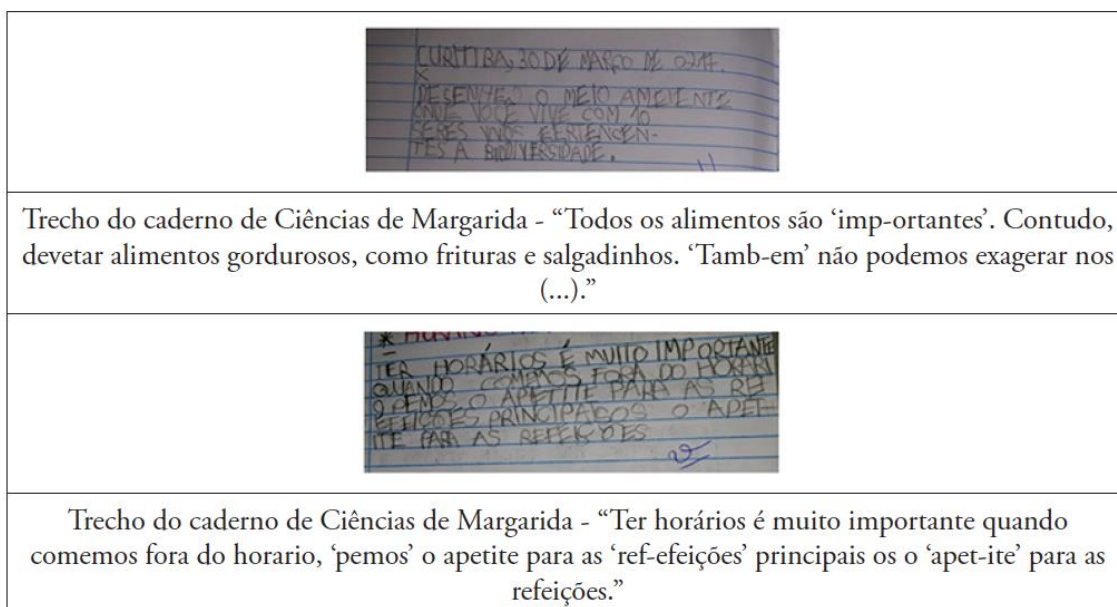 CURITIBA, 30 DE MARÇO DE 0217.
X
DESENHE O MEIO AMBIENTE
ONDE VOCÊ VIVE COM 10
SERES VIVOS PERTENCEN-
TES A BIODIVERSIDADE.
Trecho do caderno de Ciências de Margarida - “Todos os alimentos são ‘imp-ortantes’. Contudo,
devetar alimentos gordurosos, como frituras e salgadinhos. ‘Tamb-em’ não podemos exagerar nos
(...).”
TER HORÁRIOS É MUITO IMPORTANTE
QUANDO COMEMOS FORA DO HORARI
O PEMOS O APETITE PARA AS REF
EFEIÇÕES PRINCIPAIS OS O APET-
ITE PARA AS REFEIÇÕES
Trecho do caderno de Ciências de Margarida - “Ter horários é muito importante quando
comemos fora do horario, ‘pemos’ o apetite para as ‘ref-efeições’ principais os o ‘apet-ite’ para as
refeições.”